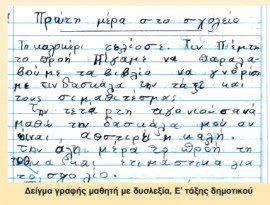 Πρώτη μέρα στο σχολείο
Το καλοκέρι τελίοσε. Τιν Πέμτι
το προί Πίγαμε να παραλα
βούμε τα βιβλία να γνορίσο
με τιν δασκάλα την τάξι και
τους σιμαθιτέσμας
Την τετάρτι αγονιούσα νά
μαθο την δασκάλα μου αν
ίναι αφστιρί η καλή.
Την άλη μέρα το προί τη
και ετιμάστικα για
το σχολίο.
Δείγμα γραφής μαθητή με δυσλεξία, Ε' τάξης δημοτικού